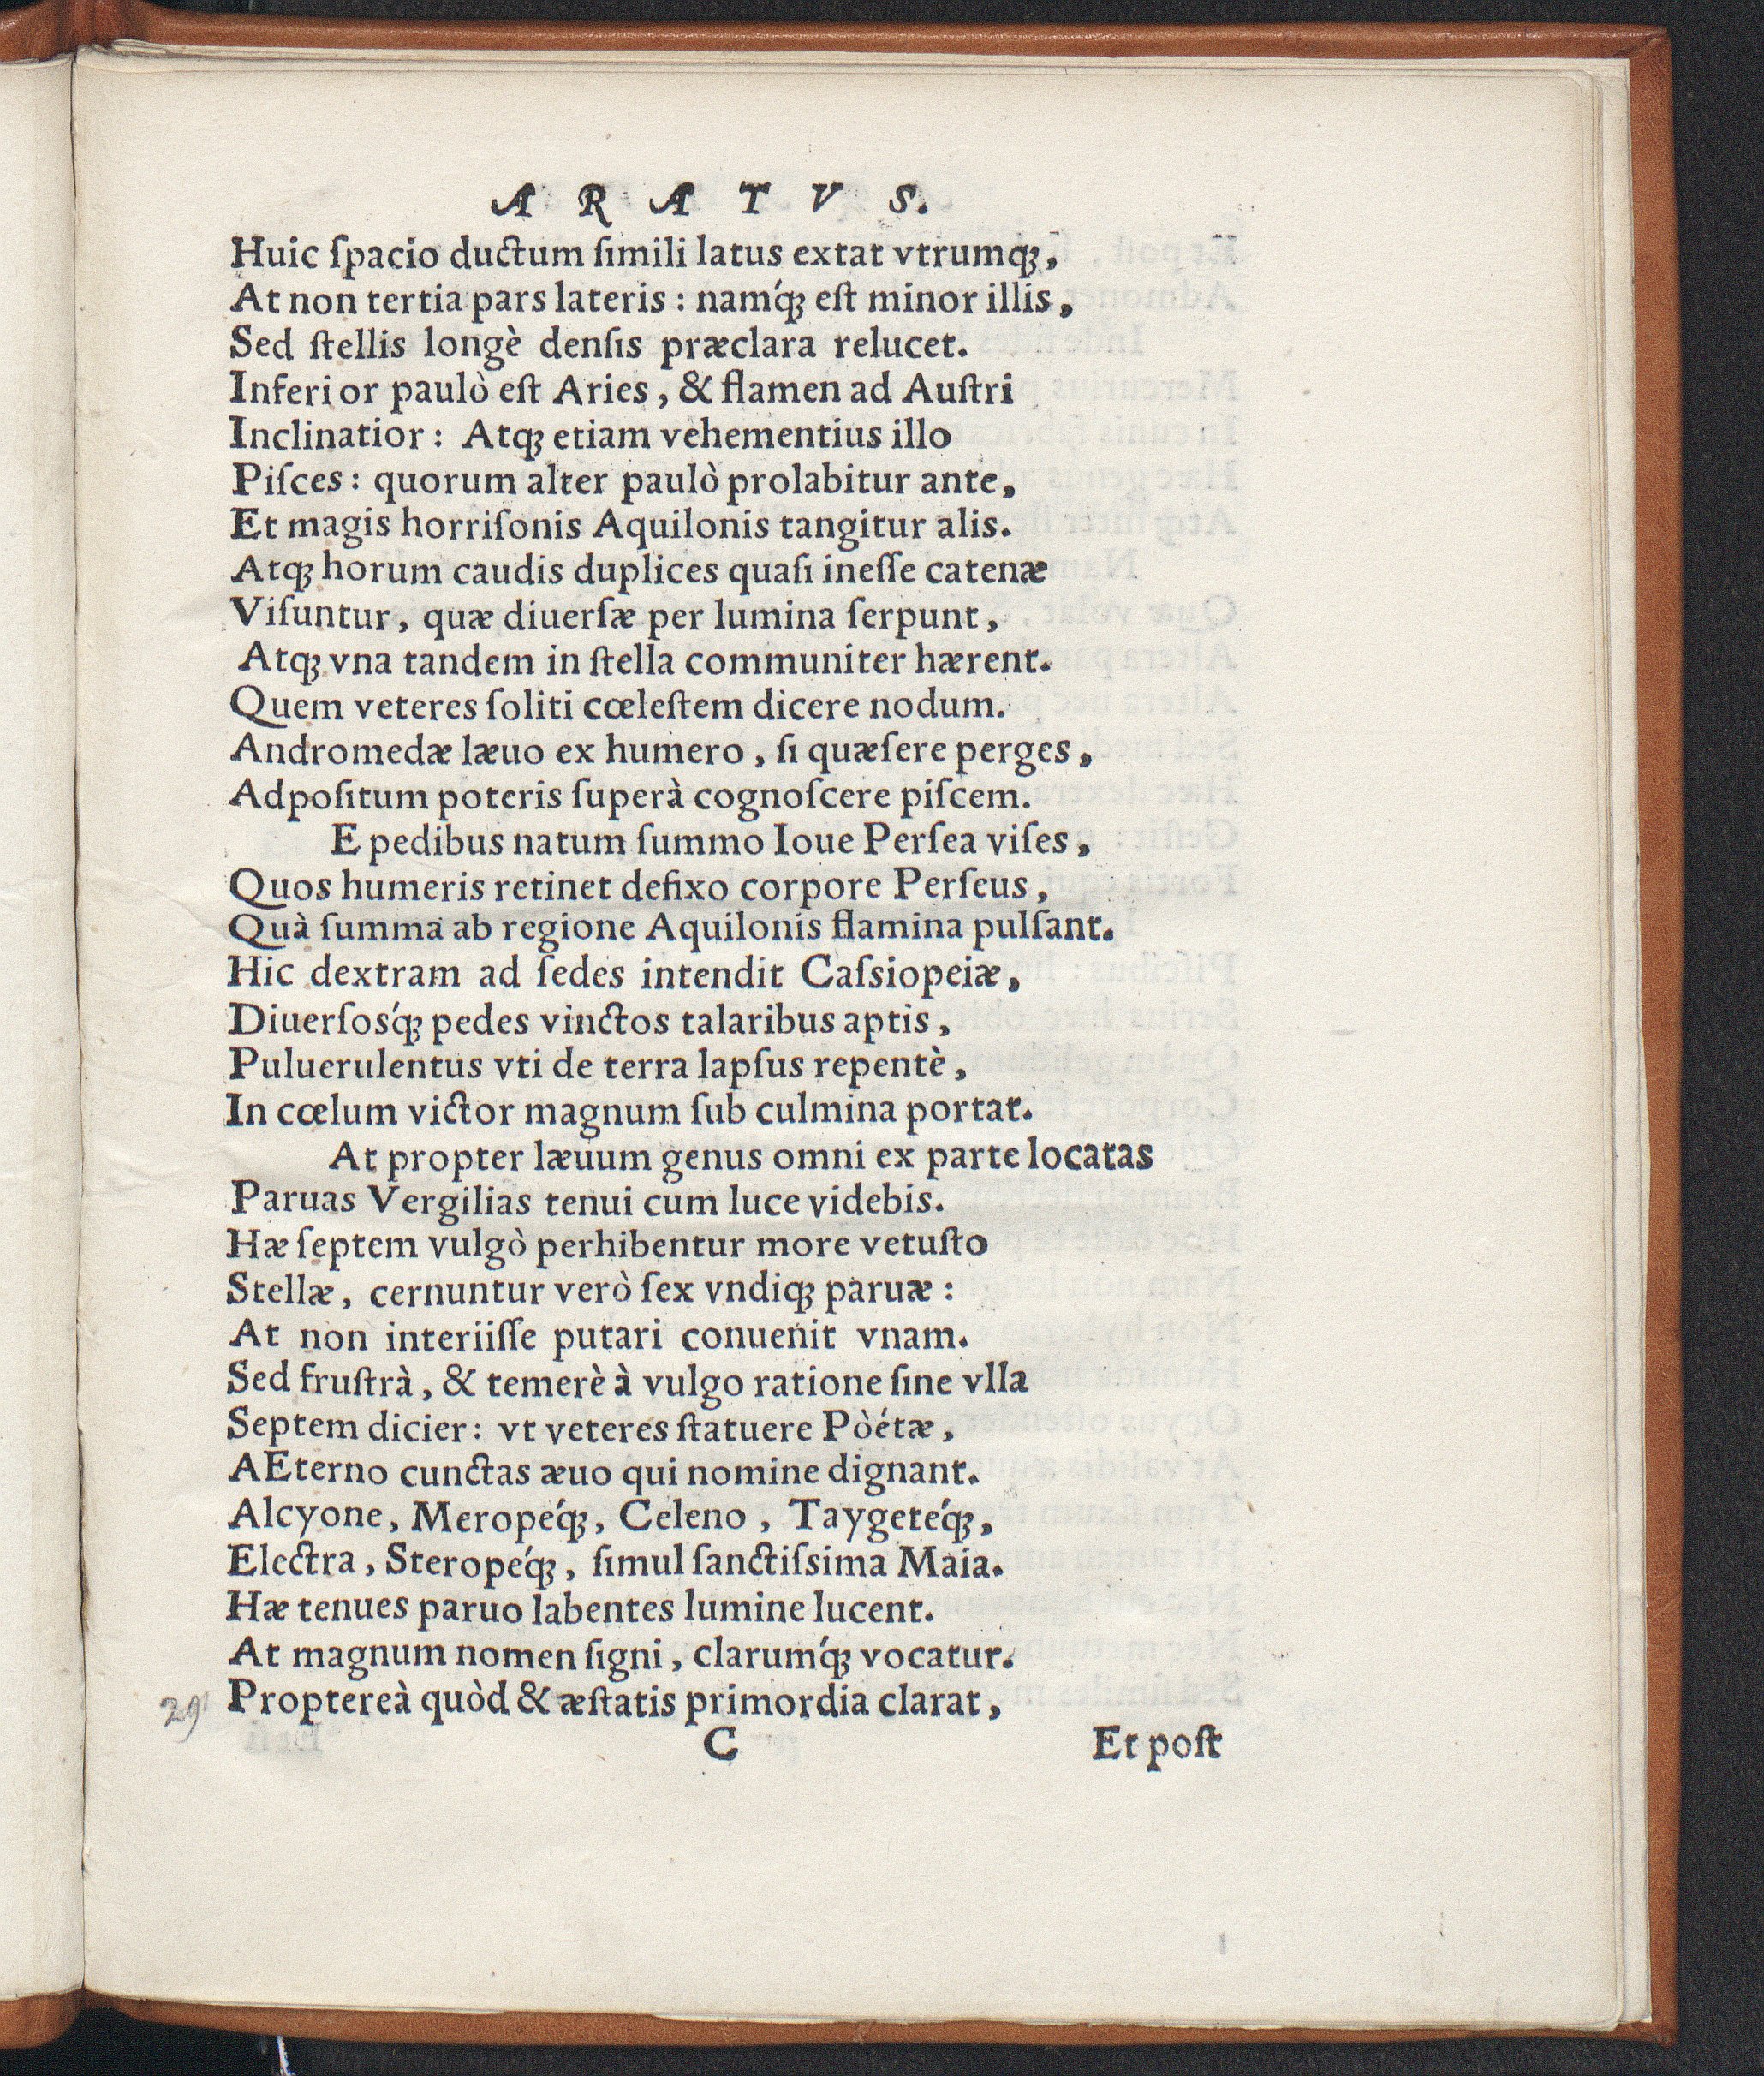 A R A T V S.
Huic ſpacio ductum ſimili latus extat vtrumqꝫ,
At non tertia pars lateris : namq́ꝫ eſt minor illis,
Sed ſtellis longè denſis præclara relucet.
Inferior paulò eſt Aries, & flamen ad Auſtri
Inclinatior: Atqꝫ etiam vehementius illo
Piſces: quorum alter paulò prolabitur ante,
Et magis horriſonis Aquilonis tangitur alis.
Atqꝫ horum caudis duplices quaſi ineſſe catenæ
Viſuntur, quæ diuerſæ per lumina ſerpunt,
Atqꝫ vna tandem in ſtella communiter hærent.
Quem veteres ſoliti cœleſtem dicere nodum.
Andromedæ læuo ex humero, ſi quæſere perges,
Adpoſitum poteris ſuperà cognoſcere piſcem.
E pedibus natum ſummo Ioue Perſea viſes,
Quos humeris retinet defixo corpore Perſeus,
Quà ſumma ab regione Aquilonis flamina pulſant.
Hic dextram ad ſedes intendit Caſsiopeiæ,
Diuerſosq́ꝫ pedes vinctos talaribus aptis,
Puluerulentus vti de terra lapſus repentè,
In cœlum victor magnum ſub culmina portat.
At propter læuum genus omni ex parte locatas
Paruas Vergilias tenui cum luce videbis.
Hæ ſeptem vulgò perhibentur more vetuſto
Stellæ, cernuntur verò ſex vndiqꝫ paruæ :
At non interiiſſe putari conuenit vnam.
Sed fruſtrà, & temerè à vulgo ratione ſine vlla
Septem dicier: vt veteres ſtatuere Pòétæ,
AEterno cunctas æuo qui nomine dignant.
Alcyone, Meropéq́ꝫ, Celeno, Taygetéq́ꝫ,
Electra, Steropéq́ꝫ, ſimul ſanctiſsima Maia.
Hæ tenues paruo labentes lumine lucent.
At magnum nomen ſigni, clarumq́ꝫ vocatur.
29 Proptereà quòd & æſtatis primordia clarat,
C Et poſt